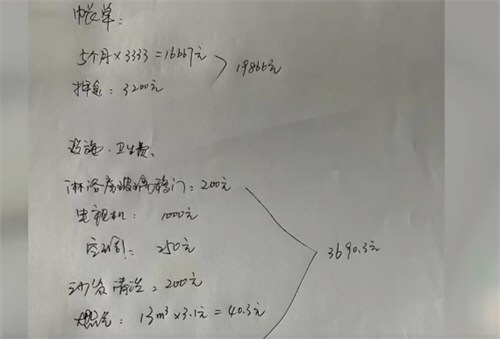 帐单:
5个月×3333=16667元
19866元
押金:3200元
设施、卫生费、
淋浴房玻璃移门:200元
电视机: 1000元
空调: 250元
3690.3元
沙发清洗:200元
燃气: 13m³×3.1元=40.3元